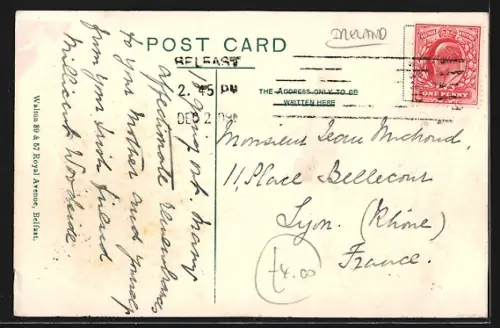 IRELAND
POST CARD
BELFAST
2.45 PM
DEC 2
THE ADDRESS ONLY TO BE
WRITTEN HERE
ONE PENNY
Monsieur Jean Michoud,
11, Place Bellecour
Lyon (Rhône)
France.
£4.00
affectionate remembrances
to your Mother and yourself
from your Irish friend
Millicent
Walton 39 & 57 Royal Avenue, Belfast.